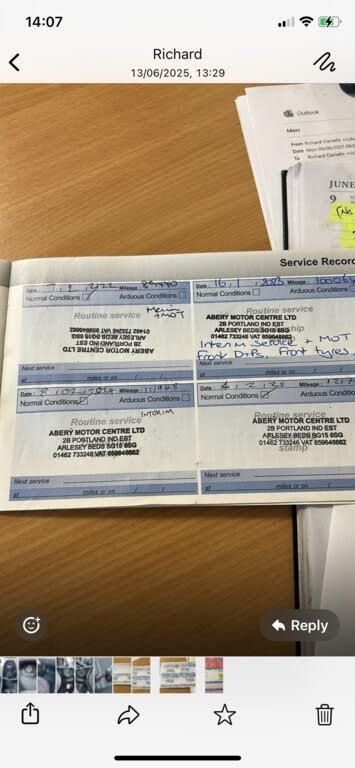 14:07
Richard
13/06/2025, 13:29
Outlook
Merc
From Richard Daniells
Date Mon 09/06/2025
To Richard Daniells
JUNE
9
(No
Service Record
Date: 7, 2, 2022 Mileage:
Normal Conditions Arduous Conditions
Main + MOT
Routine service
ABERY MOTOR CENTRE LTD
2B PORTLAND IND EST
ARLESEY BEDS SG15 6SG
01462 733246 VAT 859646662
Next service
at miles or on / /
Date: 16, 1, 2023 Mileage:
Normal Conditions Arduous Conditions
Routine service
ABERY MOTOR CENTRE LTD
2B PORTLAND IND EST
ARLESEY BEDS SG15 6SG
01462 733246 VAT 859646662
Interim Service + MOT
Front Tyres.
Next service
at miles or on / /
Date: 8, 02, 2024 Mileage: 111948
Normal Conditions Arduous Conditions
INTERIM
Routine service
ABERY MOTOR CENTRE LTD
2B PORTLAND IND EST
ARLESEY BEDS SG15 6SG
01462 733246 VAT 859646662
Next service
at miles or on / /
Date: 4, 2, 25 Mileage:
Normal Conditions Arduous Conditions
Routine service
ABERY MOTOR CENTRE LTD
2B PORTLAND IND EST
ARLESEY BEDS SG15 6SG
01462 733246 VAT 859646662
stamp
Next service
at miles or on / /
Reply